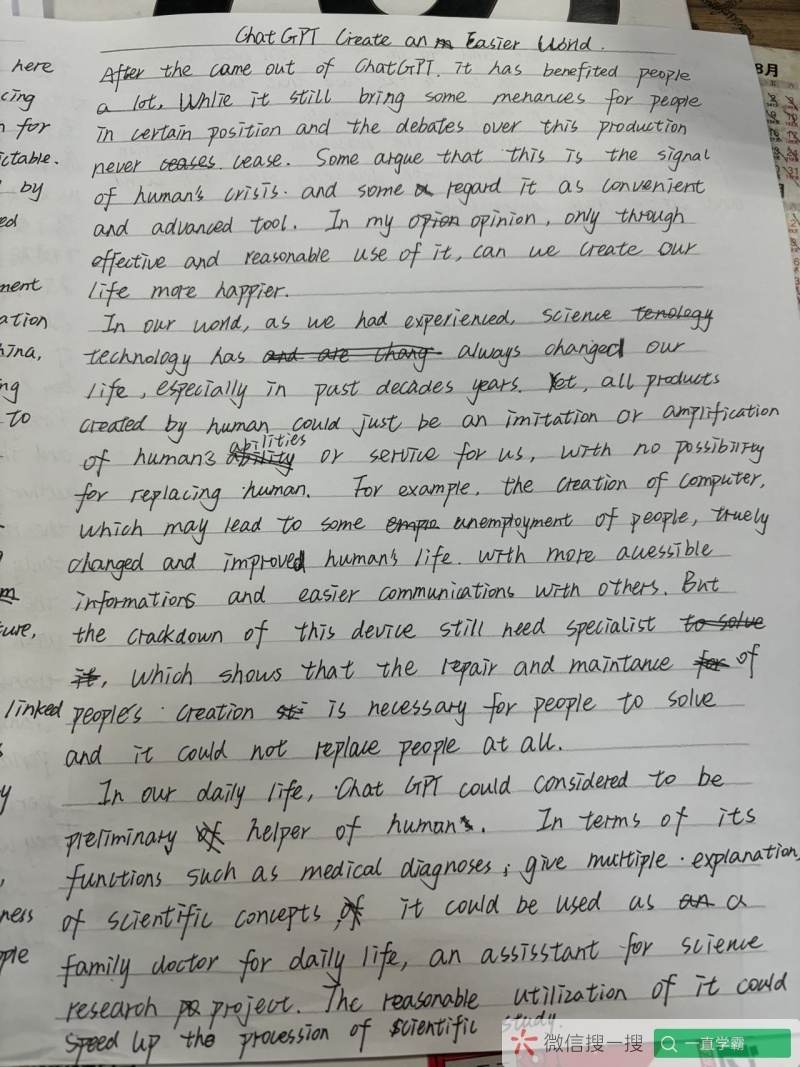 Chat GPT Create an Easier World.
After the came out of ChatGPT, it has benefited people
a lot. Whlie it still bring some menances for people
in certain position and the debates over this production
never ceases cease. Some argue that this is the signal
of human's crisis. and some regard it as convenient
and advanced tool. In my opion opinion, only through
effective and reasonable use of it, can we create our
life more happier.
In our world, as we had experienced, science tenology
technology has and are chang always changed our
life, especially in past decades years. Yet, all products
created by human could just be an imitation or amplification
of human's ability abilities or service for us, with no possibility
for replacing human. For example, the creation of computer,
which may lead to some empo unemployment of people, truely
changed and improved human's life. with more acessible
informations and easier communications with others. But
the crackdown of this device still need specialist to solve
it, which shows that the repair and maintance for of
people's creation is necessary for people to solve
and it could not replace people at all.
In our daily life, Chat GPT could considered to be
preliminary of helper of human's. In terms of its
functions such as medical diagnoses, give multiple explanation
of scientific concepts, of it could be used as an a
family doctor for daily life, an assisstant for science
research project. The reasonable utilization of it could
speed up the procession of scientific study.
here
cing
n for
ictable.
by
ed
ment
ation
hina,
ng
to
ture,
linked
y
ness
ople
8月
微信搜一搜
一直学霸